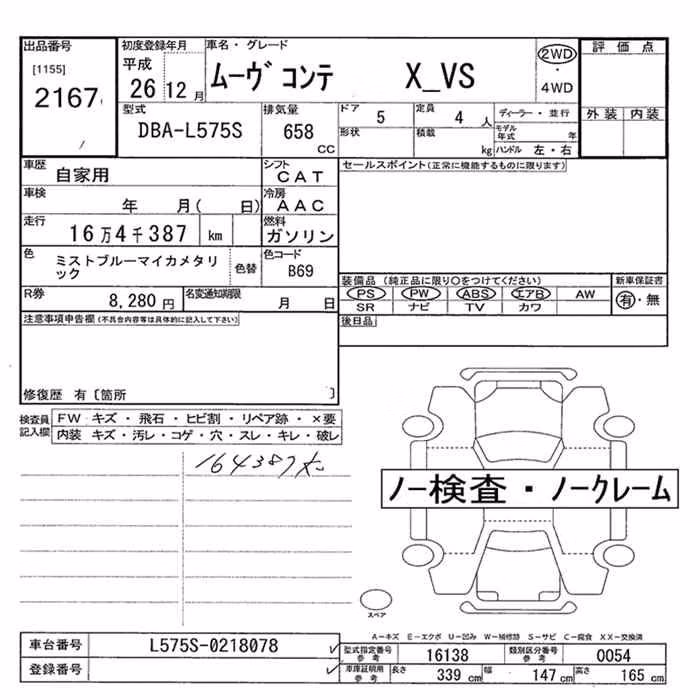 出品番号 初度登録年月 車名・グレード 評価点
[1155] 平成 ムーヴ コンテ X_VS 2WD
2167 26 12 月 ・ 4WD
型式 排気量 ドア 5 定員 4 人 ディーラー・並行 外装 内装
DBA-L575S 658 cc 形状 積載 kg モデル年式 年
ハンドル 左・右
車歴 自家用 シフト CAT セールスポイント(正常に機能するものに限ります)
車検 年 月( 日) 冷房 AAC
走行 16万4千387 km 燃料 ガソリン
色 ミストブルーマイカメタリック 色替 色コード B69
装備品 (純正品に限り〇をつけてください) 新車保証書
R券 8,280円 名変通知期限 月 日 PS PW ABS エアB AW 有・無
SR ナビ TV カワ
注意事項申告欄(不具合内容等は具体的に記入して下さい) 後日品
修復歴 有〔箇所 〕
検査員記入欄 FW キズ・飛石・ヒビ割・リペア跡・×要
内装 キズ・汚レ・コゲ・穴・スレ・キレ・破レ
164387
ノー検査・ノークレーム
スペア
A-キズ E-エクボ U-凹み W-補修跡 S-サビ C-腐食 XX-交換済
車台番号 L575S-0218078 型式指定番号参考 16138 類別区分番号参考 0054
登録番号 車庫証明用参考 長さ 339 cm 幅 147 cm 高さ 165 cm